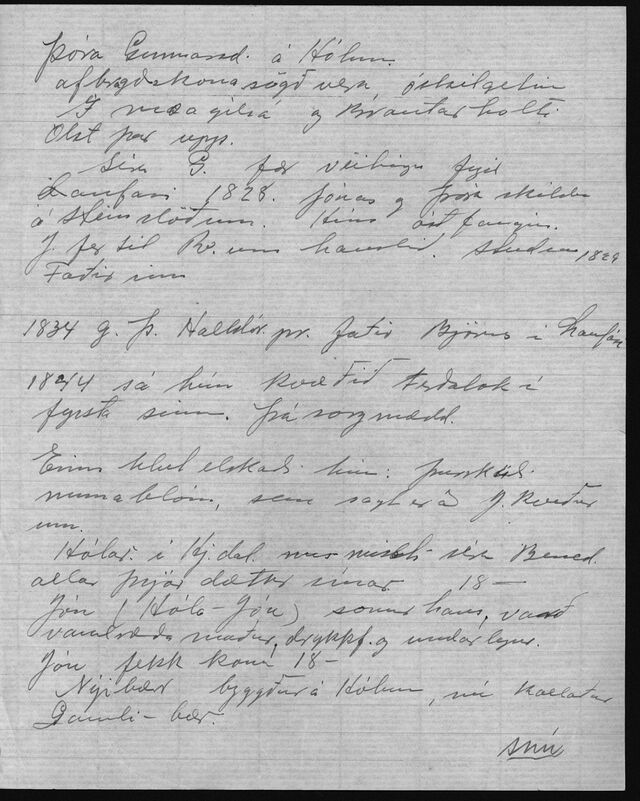 Þóra Gunnarsd. á Hólum.
afbragðskona sögð vera, óskilgetin
Í og Brautarholti
Ólst þar upp.
Séra G. fær veitingu fyrir
Laufási 1828. Jónas og Þóra skildu
á Steinsstöðum. Hún ástfangin.
J. fer til Rv. um haustið. Student 1829
Faðir inn
1834 g. Þ. Halldór. pr. fatir Björns í Laufási
1844 sá hún kvæðið Ferðalok í
fyrsta sinn. Þá sorgmædd.
Eins hlut elskaði hún: þurrkuð
munablóm, sem sagt er að J. kveður
um.
Hólar. í Hj.dal missti séra Bened.
allar þrjár dætur sínar 18–
Jón (Hóla-Jón) sonur hans, varð
vandræða maður, drykkf. og undarlegur.
Jón fekk konu 18–
Nýibær byggður á Hólum, nú kallaður
Gamli-bær.
snú